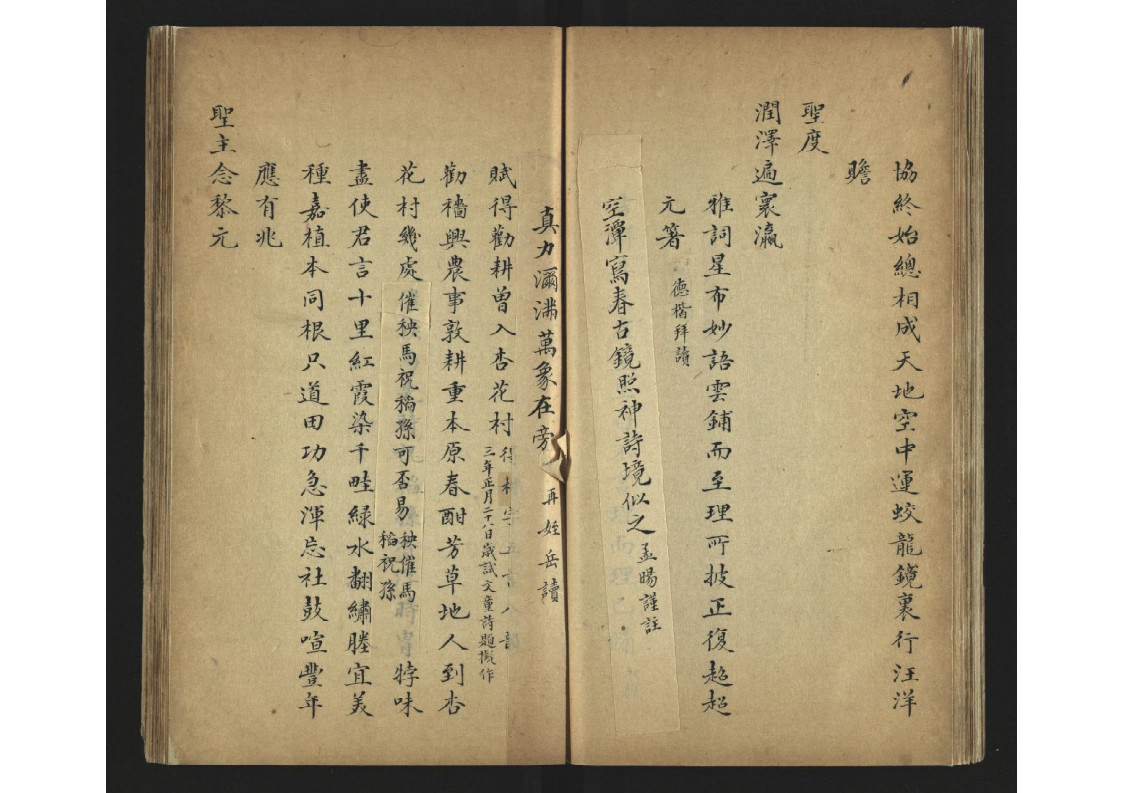 協終始總相成天地空中運蛟龍鏡裏行汪洋
瞻
聖度
潤澤遍寰瀛
雅詞星布妙語雲鋪而至理所披正復超超
元箸
德楷拜讀
空潭寫春古鏡照神詩境似之
孟暘謹註
真力瀰滿萬象在旁
再姪岳讀
賦得勸耕曾入杏花村
得村字五言八韻
三年正月二十八日歲試文童詩題擬作
勸穡興農事敦耕重本原春酣芳草地人到杏
花村幾處催秧馬祝稻孫可否易
秧催馬
稻祝孫
特味
盡使君言十里紅霞染千畦綠水翻繡塍宜美
種嘉植本同根只道田功急渾忘社鼓喧豐年
應有兆
聖主念黎元